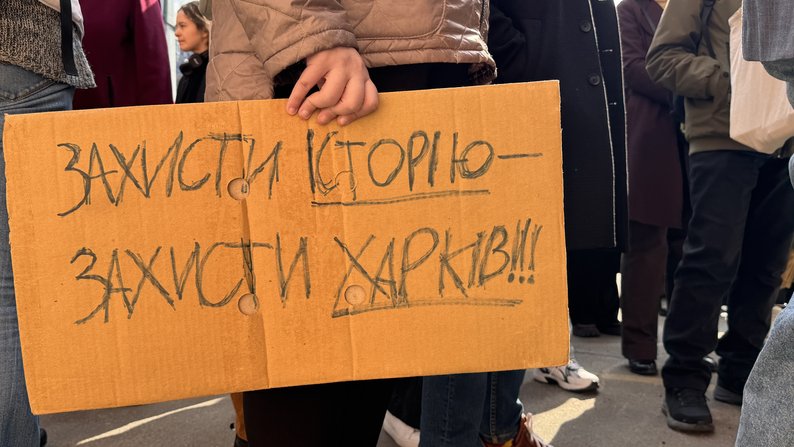 ЗАХИСТИ ІСТОРІЮ—
ЗАХИСТИ ХАРКІВ!!!